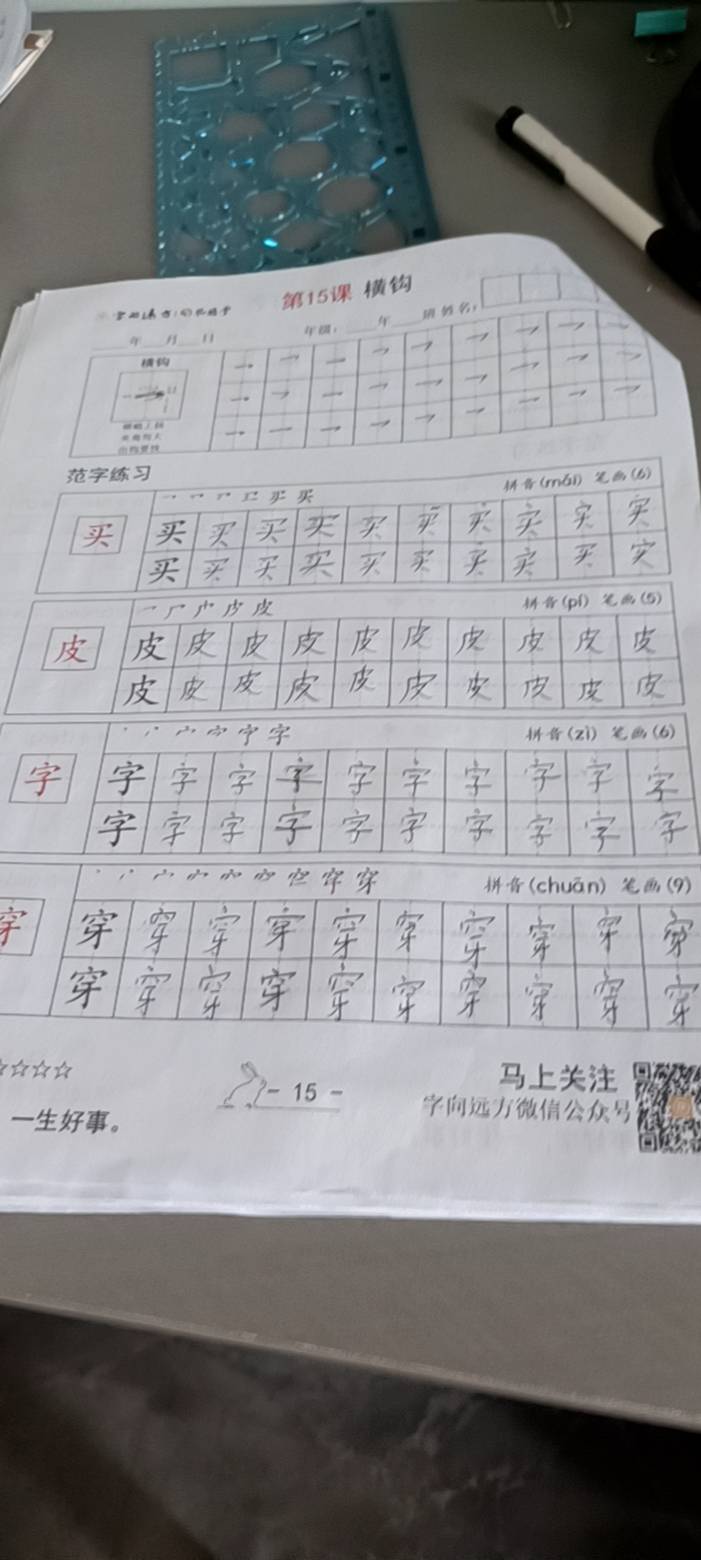 第15课 横钩
年 月 日 年级: 年 班 姓名:
横钩
范字练习
拼音(mǎi) 笔画(6)
买
买 买 买 买 买 买 买 买 买 买
买 买 买 买 买 买 买 买 买 买
拼音(pí) 笔画(5)
皮
皮 皮 皮 皮 皮 皮 皮 皮 皮 皮
皮 皮 皮 皮 皮 皮 皮 皮 皮 皮
拼音(zì) 笔画(6)
字
字 字 字 字 字 字 字 字 字 字
字 字 字 字 字 字 字 字 字 字
拼音(chuān) 笔画(9)
穿
穿 穿 穿 穿 穿 穿 穿 穿 穿 穿
穿 穿 穿 穿 穿 穿 穿 穿 穿 穿
☆☆☆☆
一生好事。
- 15 -
马上关注
字向远方微信公众号